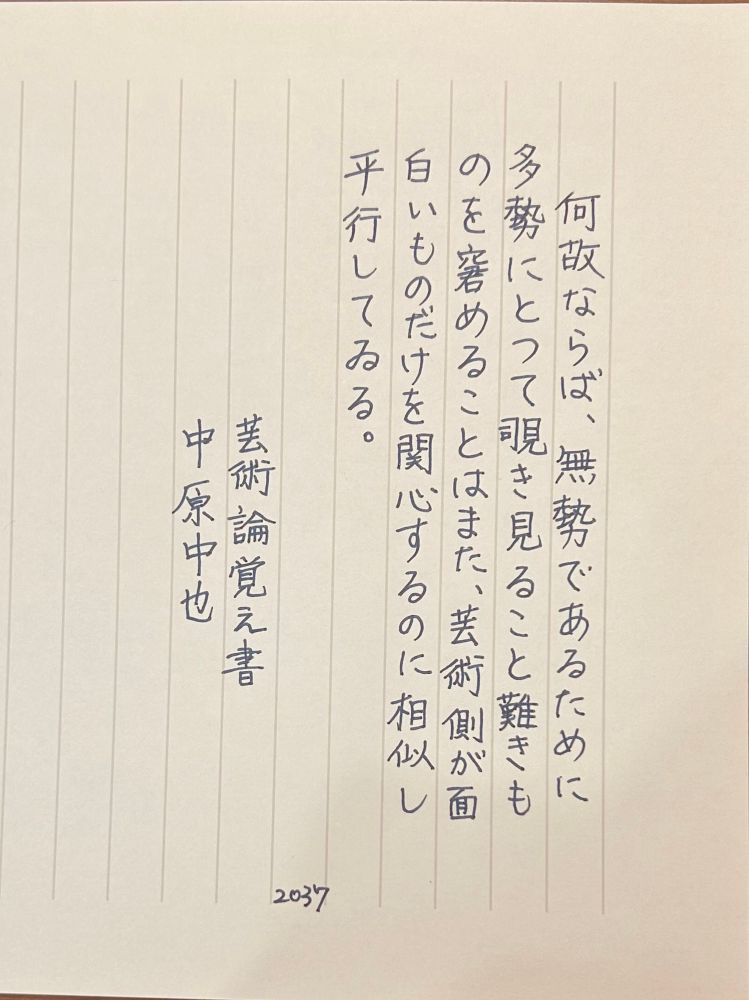 何故ならば、無勢であるために
多勢にとつて覗き見ること難きも
のを窘めることはまた、芸術側が面
白いものだけを関心するのに相似し
平行してゐる。
芸術論覚え書
中原中也
2037